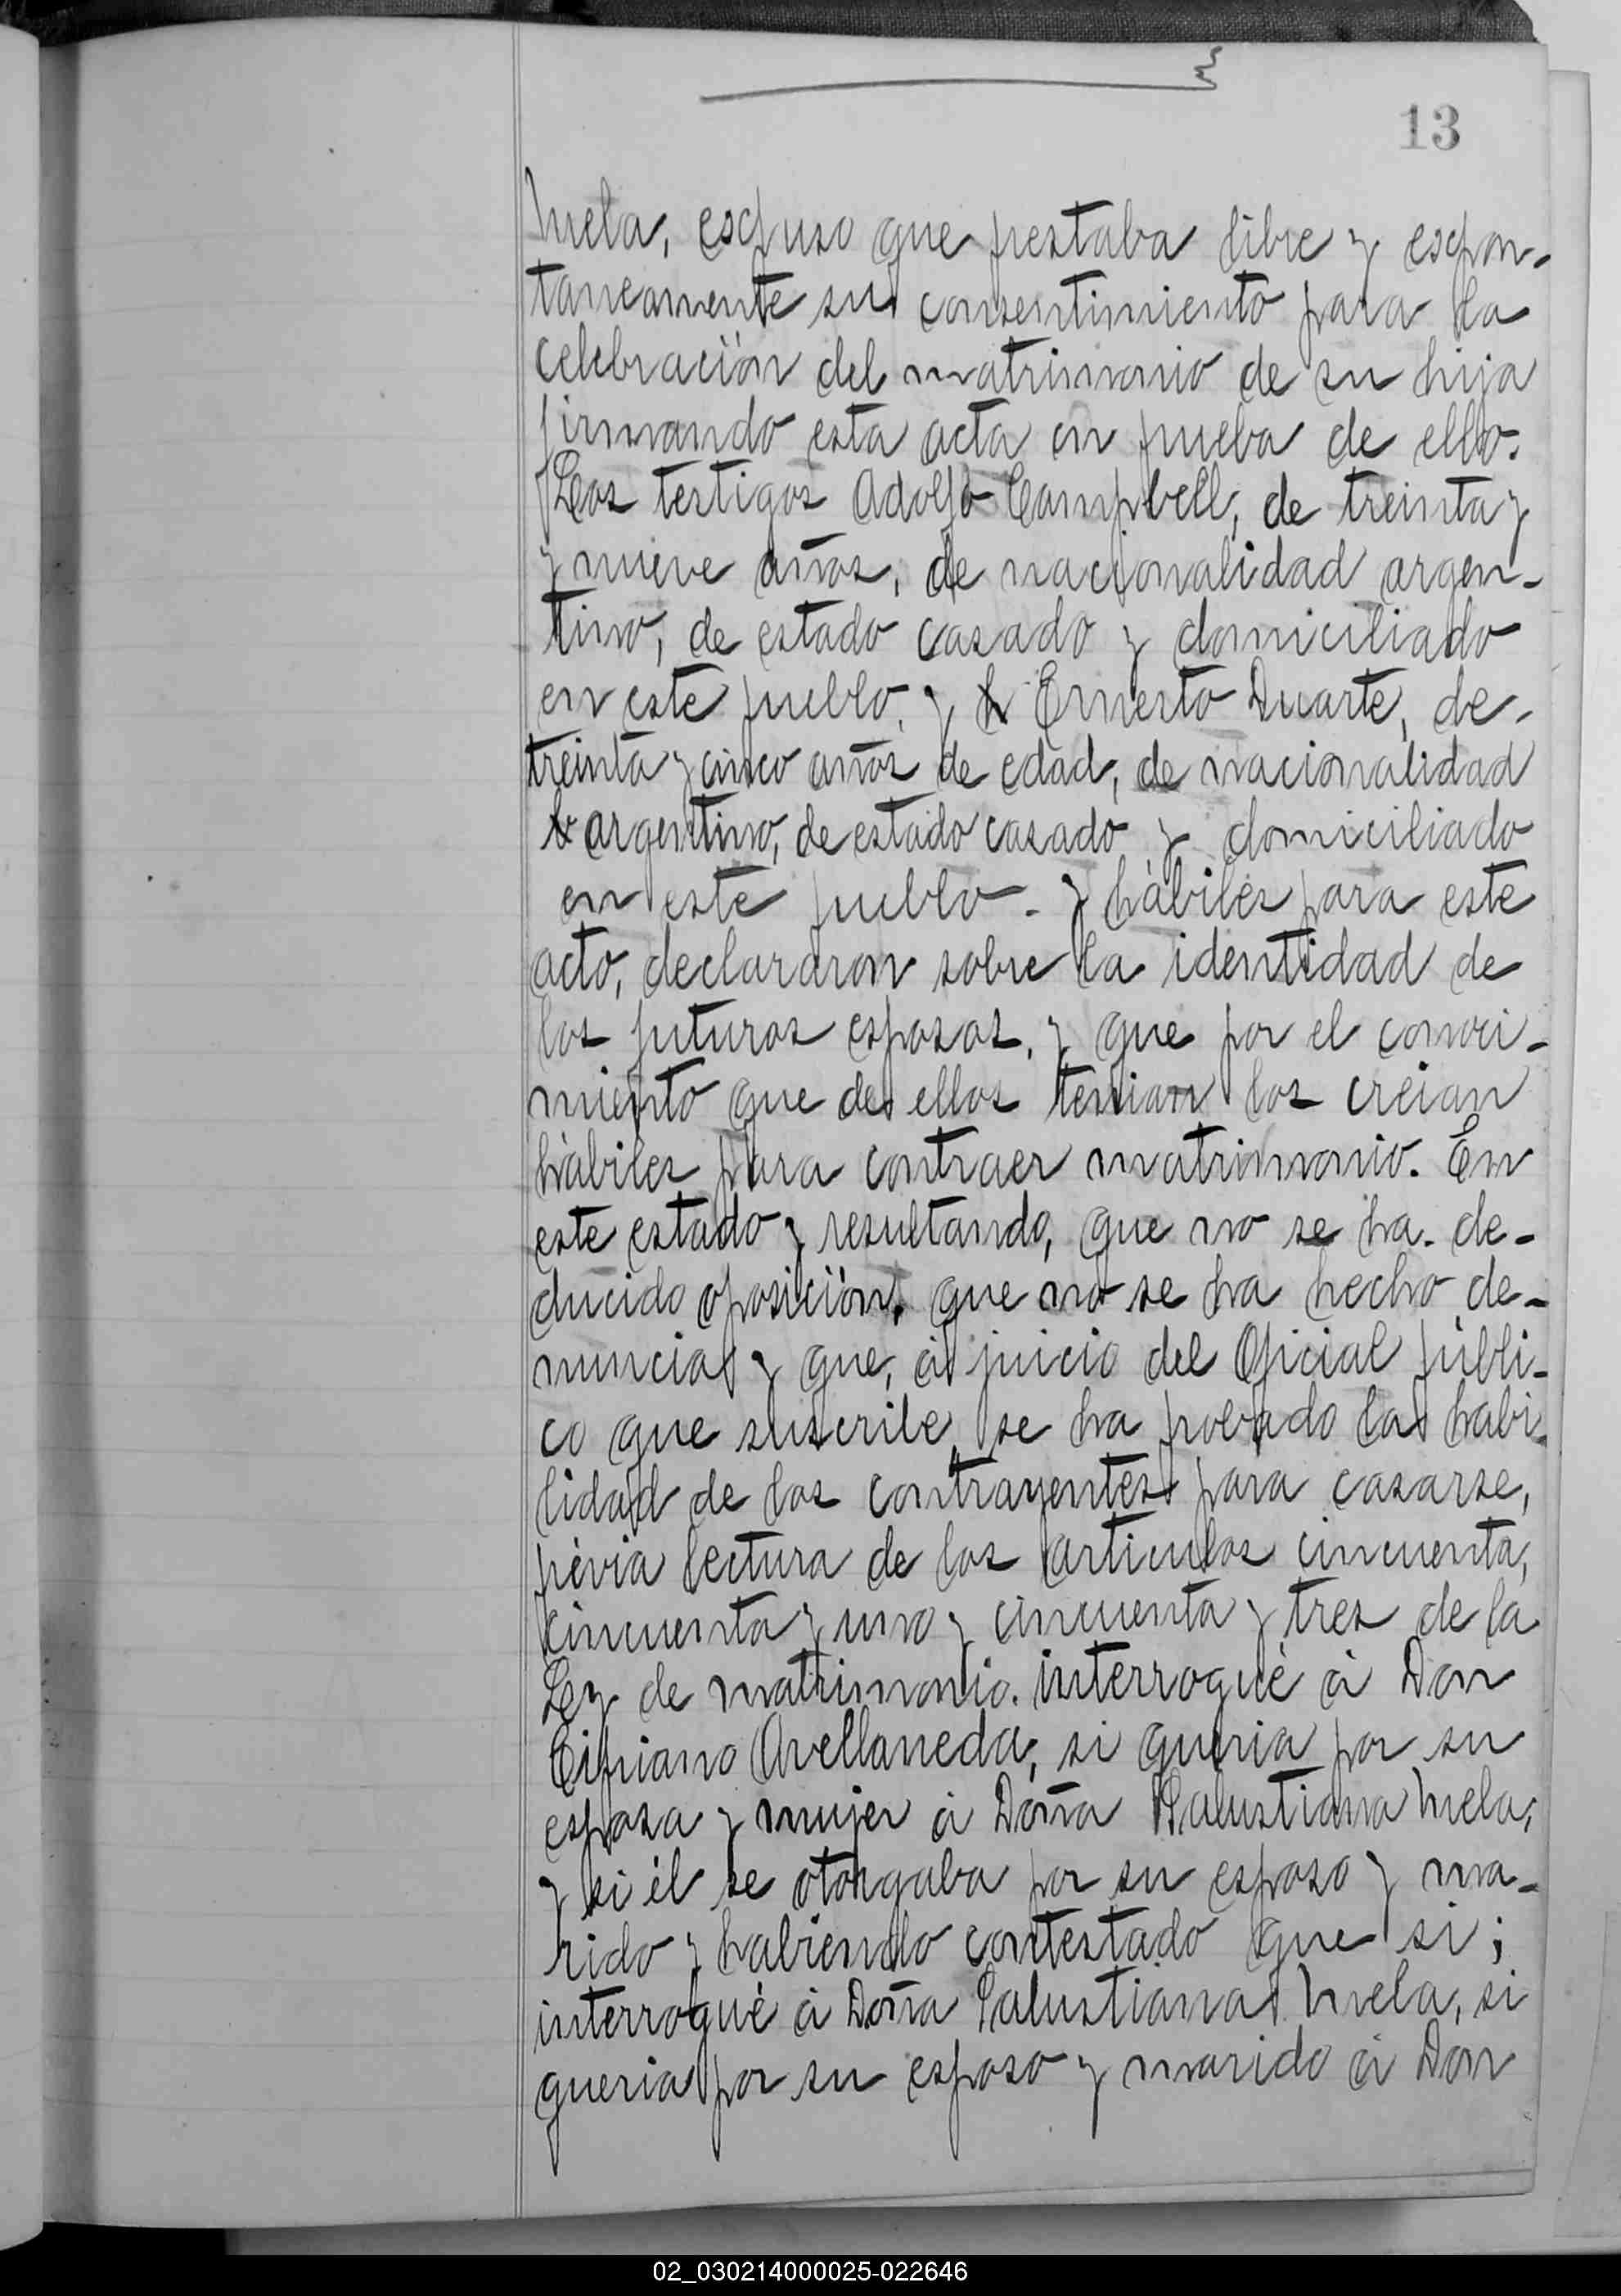 13
Mela, espuso que prestaba libre y espon-
taneamente su consentimiento para la
celebración del matrimonio de su hija
firmando esta acta en prueba de ello.
Los testigos Adolfo Campbell, de treinta y
y nueve años, de nacionalidad argen-
tino, de estado casado y domiciliado
en este pueblo, y Ernesto Duarte, de
treinta y cinco años de edad, de nacionalidad
argentino, de estado casado y domiciliado
en este pueblo - y hábiles para este
acto, declararon sobre la identidad de
los futuros esposos, y que por el conoci-
miento que de ellos tenian los creian
hábiles para contraer matrimonio. En
este estado y resultando, que no se ha de-
ducido oposición, que no se ha hecho de-
nuncia y que, á juicio del Oficial públi-
co que suscribe, se ha probado la habi-
lidad de los contrayentes para casarse,
prévia lectura de los articulos cincuenta,
cincuenta y uno y cincuenta y tres de la
Ley de matrimonio. interrogué á Don
Cipriano Avellaneda, si queria por su
esposa y mujer á Doña Salustiana Mela,
y si él se otorgaba por su esposo y ma-
rido y habiendo contestado que si;
interrogué á Doña Salustiana Mela, si
queria por su esposo y marido á Don
02_030214000025-022646